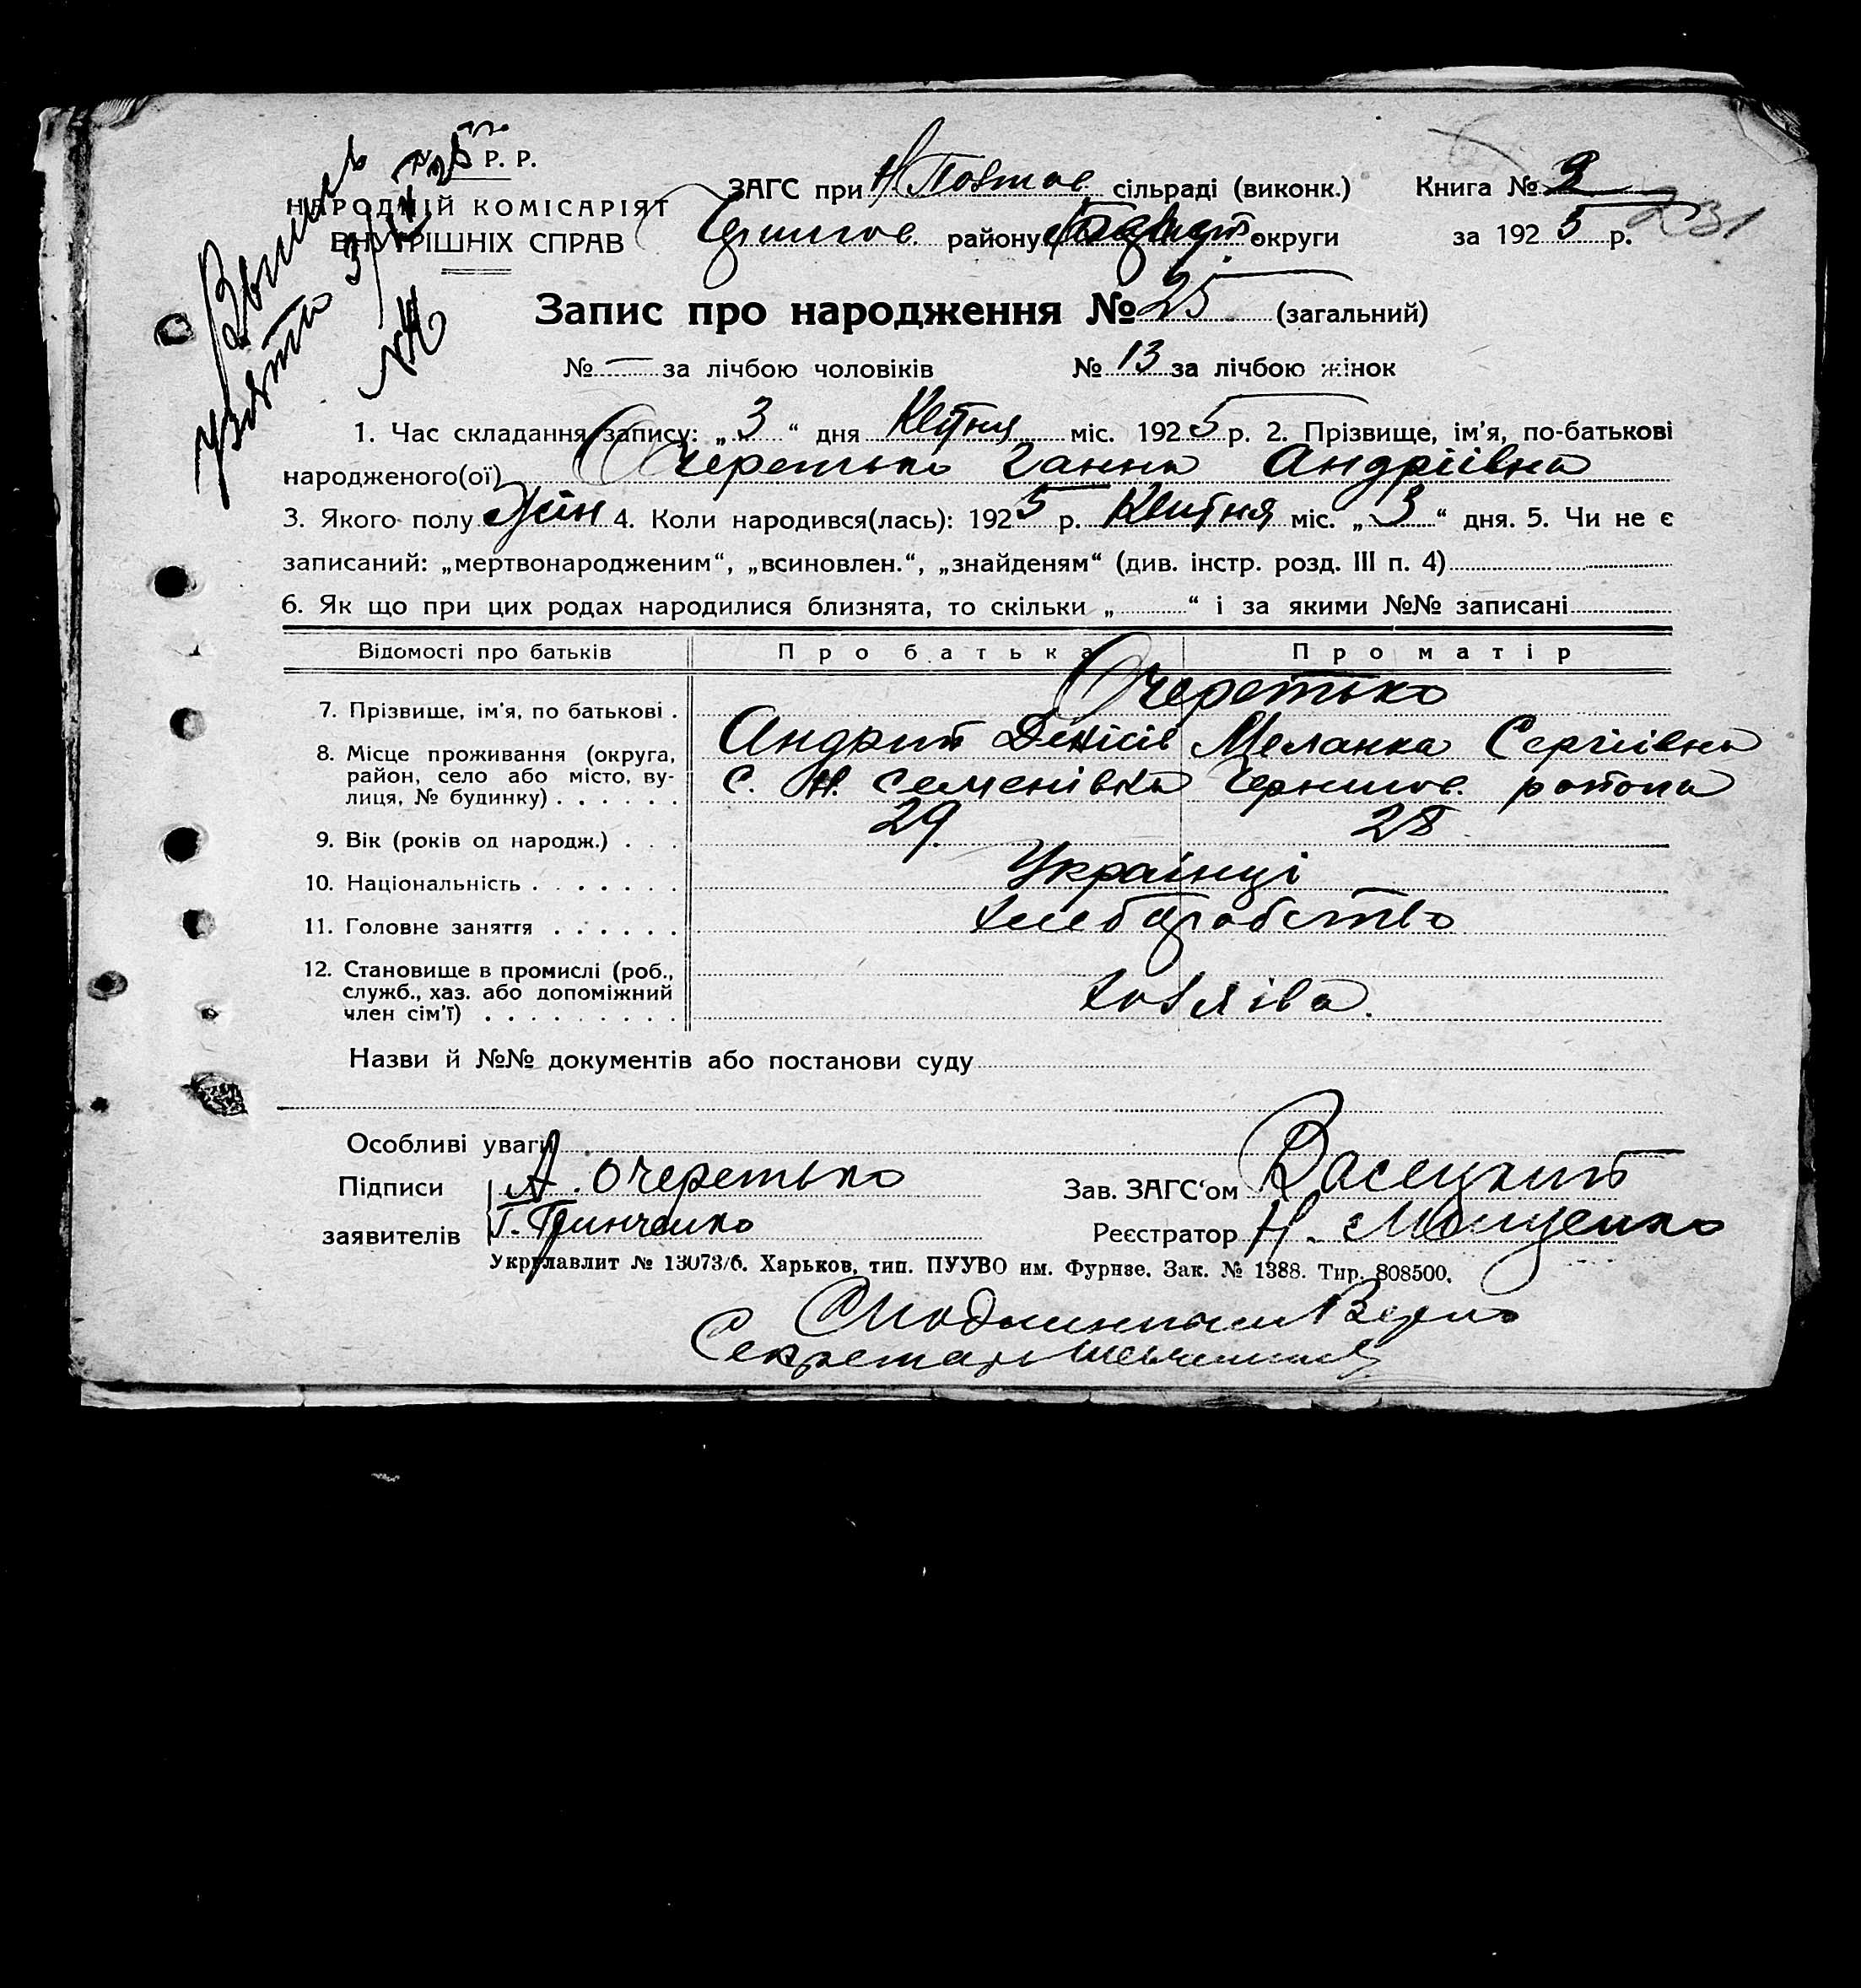 Р. Р.
НАРОДНІЙ КОМІСАРІЯТ
ВНУТРІШНІХ СПРАВ
ЗАГС при Н Полтов. сільраді (виконк.) Книга №
району округи за 1925 р. 231
Запис про народження № 25 (загальний)
№ — за лічбою чоловіків № 13 за лічбою жінок
1. Час складання запису: „3“ дня Квітня міс. 1925 р. 2. Прізвище, ім'я, по-батькові
народженого(ої) Очеретько Ганна Андріівна
3. Якого полу Жін 4. Коли народився(лась): 1925 р. Квітня міс. „3“ дня. 5. Чи не є
записаний: „мертвонародженим“, „всиновлен.“, „знайденям“ (див. інстр. розд. III п. 4)
6. Як що при цих родах народилися близнята, то скільки „ “ і за якими №№ записані
Відомості про батьків Про батька Про матір
7. Прізвище, ім'я, по батькові . Очеретько
Андрий Денісів Меланка Сергіівна
8. Місце проживання (округа, район, село або місто, вулиця, № будинку) . . . . . . с. Н. Семенівка Чернигов. района
9. Вік (років од народж.) . . . 29. 28
10. Національність . . . . . . . Украінці
11. Головне заняття . . . . . . хлеборобство
12. Становище в промислі (роб., служб., хаз. або допоміжний член сім'ї) . . . . . . . . . хазяіва.
Назви й №№ документів або постанови суду
Особливі уваги
Підписи А. Очеретько Зав. ЗАГС'ом Васецкий
заявителів Г. Гринченко Реєстратор Н. Мощенко
Укрглавлит № 13073/6. Харьков, тип. ПУУВО им. Фрунзе. Зак. № 1388. Тир. 808500.
С подлинным Верно
Секретарь